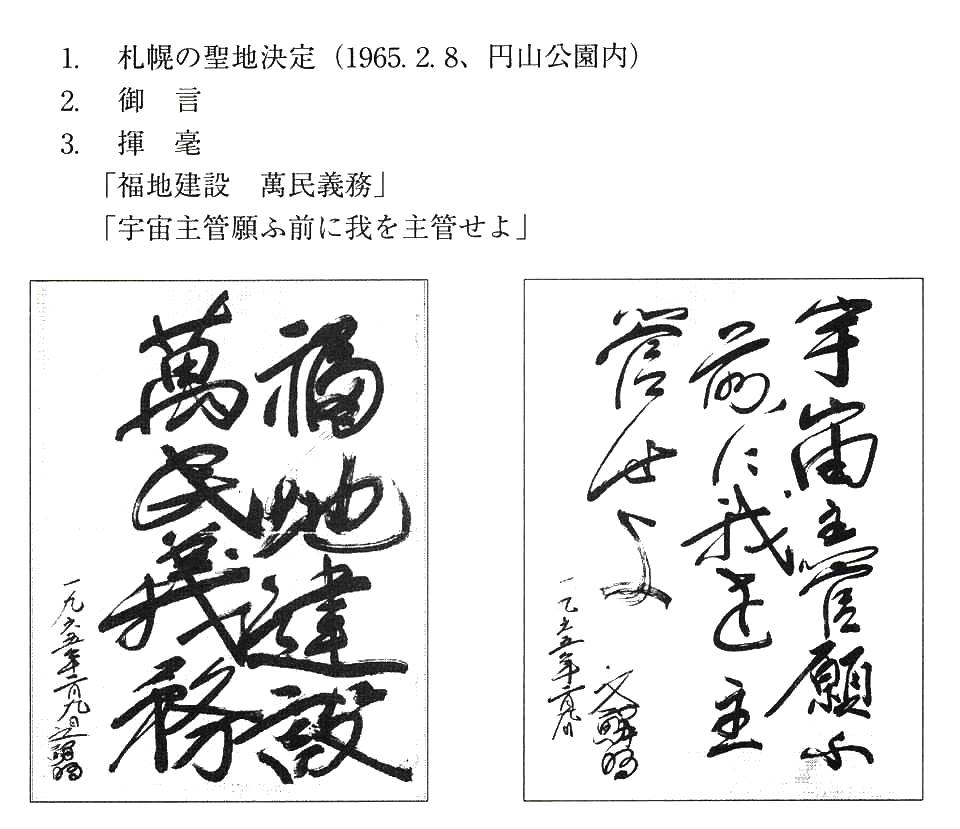 1. 札幌の聖地決定（1965. 2. 8、円山公園内）
2. 御　言
3. 揮　毫
「福地建設　萬民義務」
「宇宙主管願ふ前に我を主管せよ」
福地建設
萬民義務
一九六五年二月九日
宇宙主管願ふ
前に我を主
管せよ
一九六五年二月九日
文鮮明